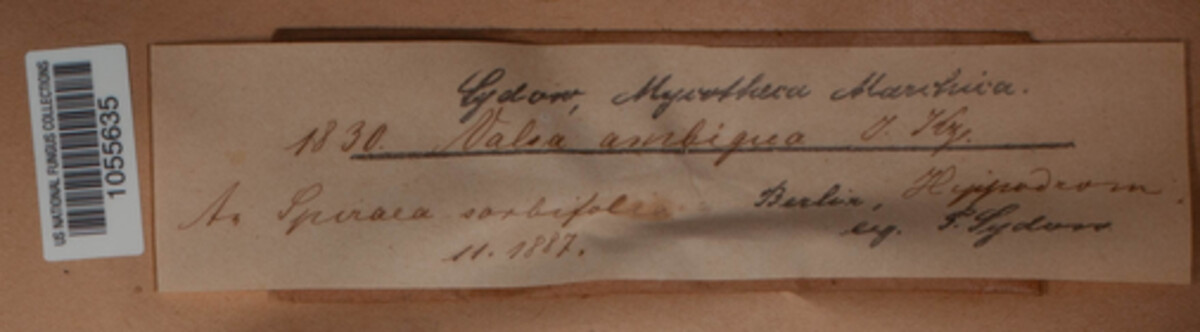 US NATIONAL FUNGUS COLLECTIONS
1055635
Sydow, Mycotheca Marchica.
1830. Valsa ambigua J. Kz.
An Spiraea sorbifolia Berlin, Hippodrom.
11. 1887. leg. P. Sydow